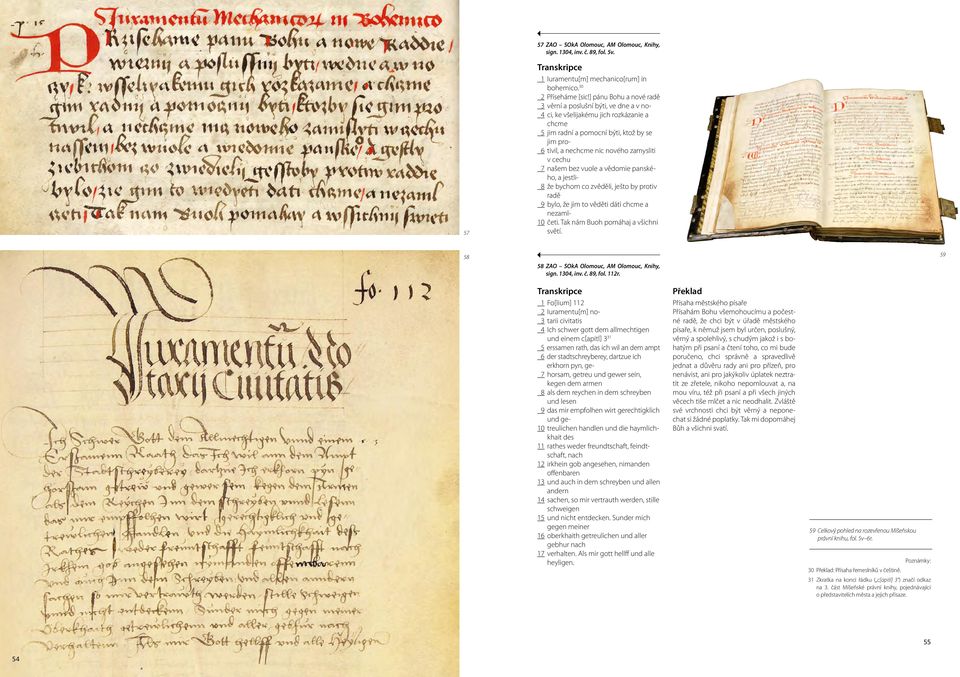 Juramentũ Mechanicoꝝ in Bohemico
Przisehame panu Bohu a nowe Raddie
wiernij a poslussnij byti wedne a w no
czy k wsselijakemu gich rozkazanie a chczme
gim radnij a pomocznij byti ktozby sie gim pro
tiwil a nechczme nicz noweho zamisslyti w czechu
nassem bez wuole a wiedomie panske° A gestly
ziebichom czo zwiedieli gesstoby protiw raddie
bylo zie gim to wiedyeti dati chczme a nezaml
czeti Tak nam Buoh pomahay a wssichnij swieti
57
58
fo. 112
Juramentũ No
tarij Ciuitatis
Ich Schwer Gott dem Allmechtigen vnnd einem c 3
Ersamenn Raath das Ich wil ann dem Ampt
der Stadtschreyberey dartzue Ich erkhorn pyn ge
horsam getrew vnd gewer sein kegen dem Armen
als dem Reychen Inn dem schreyben vnnd lesenn
das mir empffolhen wirt gerechtigklich vnd ge
trewlichenn Handlen vnd die Haymlichkhait des
Rathes weder freuntschafft feindtschafft nach
Irkhein gob angesehen nimanden offembarenn
vnd auch Inn dem Schreyben vnd allen anndern
sachen so mir vertrauth werden stille Schweigen
vnnd nicht entdecken. Sunder mich gegen meiner
Oberkhaith getrewlichenn vnd aller gebur nach
verhaltenn. Als mir Gott hellff vnd alle Heyligen
54
57 ZAO – SOkA Olomouc, AM Olomouc, Knihy,
sign. 1304, inv. č. 89, fol. 5v.
Transkripce
1 Iuramentu[m] mechanico[rum] in
bohemico.30
2 Přiseháme [sic!] pánu Bohu a nové radě
3 věrni a poslušni býti, ve dne a v no-
4 ci, ke všelijakému jich rozkázanie a
chcme
5 jim radni a pomocni býti, ktož by se
jim pro-
6 tivil, a nechcme nic nového zamysliti
v cechu
7 našem bez vuole a vědomie panské-
ho, a jestli-
8 že bychom co zvěděli, ješto by protiv
radě
9 bylo, že jim to věděti dáti chcme a
nezaml-
10 četi. Tak nám Buoh pomáhaj a všichni
světí.
59
58 ZAO – SOkA Olomouc, AM Olomouc, Knihy,
sign. 1304, inv. č. 89, fol. 112r.
Transkripce
1 Fo[lium] 112
2 Iuramentu[m] no-
3 tarii civitatis
4 Ich schwer gott dem allmechtigen
und einem c[apitl] 3 31
5 erssamen rath, das ich wil an dem ampt
6 der stadtschreyberey, dartzue ich
erkhorn pyn, ge-
7 horsam, getreu und gewer sein,
kegen dem armen
8 als dem reychen in dem schreyben
und lesen
9 das mir empfolhen wirt gerechtigklich
und ge-
10 treulichen handlen und die haymlich-
khait des
11 rathes weder freundtschaft, feindt-
schaft, nach
12 irkhein gob angesehen, nimanden
offenbaren
13 und auch in dem schreyben und allen
andern
14 sachen, so mir vertrauth werden, stille
schweigen
15 und nicht entdecken. Sunder mich
gegen meiner
16 oberkhaith getreulichen und aller
gebhur nach
17 verhalten. Als mir gott hellff und alle
heyligen.
Překlad
Přísaha městského písaře
Přísahám Bohu všemohoucímu a počest-
né radě, že chci být v úřadě městského
písaře, k němuž jsem byl určen, poslušný,
věrný a spolehlivý, s chudým jakož i s bo-
hatým při psaní a čtení toho, co mi bude
poručeno, chci správně a spravedlivě
jednat a důvěru rady ani pro přízeň, pro
nenávist, ani pro jakýkoliv úplatek neztra-
tit ze zřetele, nikoho nepomlouvat a, na
mou víru, též při psaní a při všech jiných
věcech tiše mlčet a nic neodhalit. Zvláště
své vrchnosti chci být věrný a nepone-
chat si žádné poplatky. Tak mi dopomáhej
Bůh a všichni svatí.
59 Celkový pohled na rozevřenou Míšeňskou
právní knihu, fol. 5v–6r.
Poznámky:
30 Překlad: Přísaha řemeslníků v češtině.
31 Zkratka na konci řádku („c[apitl] 3“) značí odkaz
na 3. část Míšeňské právní knihy, pojednávající
o představitelích města a jejich přísaze.
55